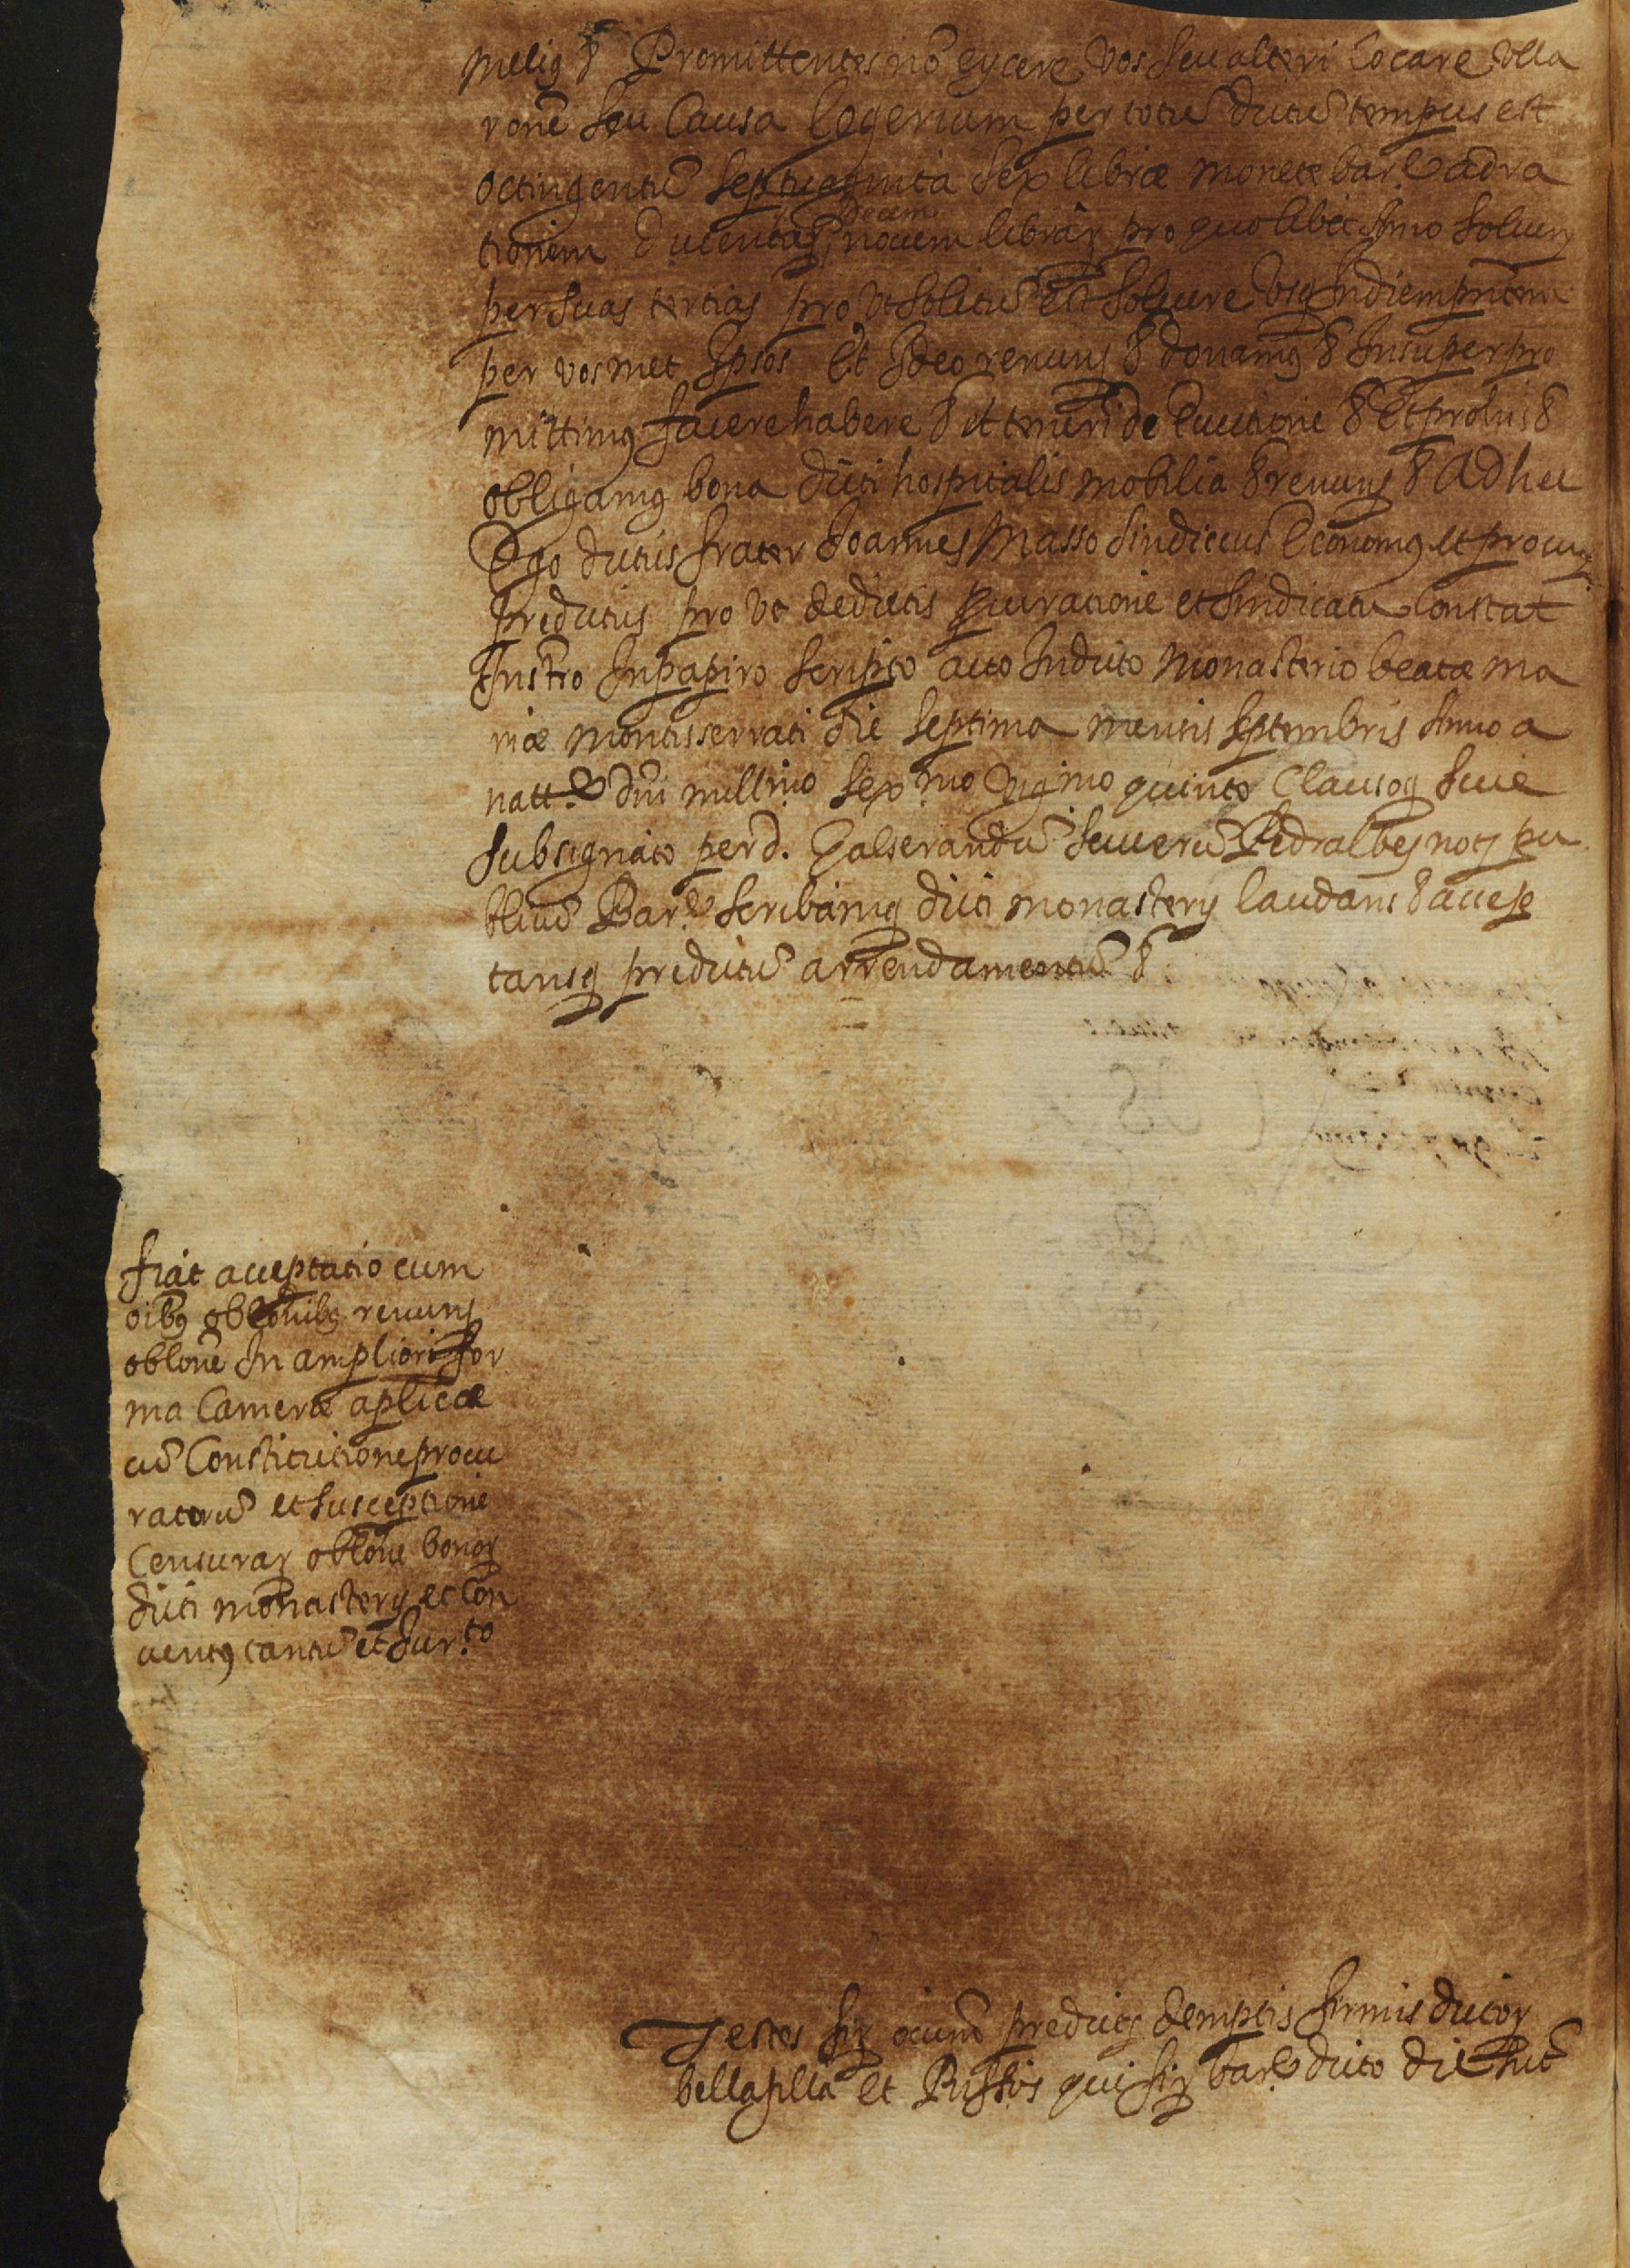 melius & Promittentes nõ eycere vos seu alteri locare ulla
ronẽ seu Causa logerium per totũ dictũ tempus est
octingentũ septuaginta sex librae monete barᵉ ad ra
tionem ducentas decem novem librar pro quolibet Anno solven
per suas tertias pro ut solitũ est solvere usq Indiem pntem
per vosmet Ipsos Et Ideo renuns & donamus & Insuper pro
mittimus facere habere & et teneri de Evictione & Et pro his &
obligamus bona dicti hospitalis mobilia & renuns & Ad hec
Ego dictus frater Joannes Masso Sindiccus Economus et procur
predictus pro ut de dictis procuratione et sindicatu Constat
Instro Inpapiro scripto acto Indicto Monasterio beatae ma
riae montisserrati die septima mensis septembris Anno a
natte dñi millmo sexmo vigmo quinto Clausoq sive
subsignato per d. Galserandũ Severũ Pedralbes not pu
blicũ Barᵉ scribamq dicti monastery laudans & accep
tansq predictũ arrendamentũ &
fiat acceptatio cum
oibus oblonibus renuns
oblone In ampliori for
ma Camerae aplicae
cũ Constitutione procu
ratorũ et susceptione
Censurar oblone bonor
dicti monastery et Con
ventus tantũ et Jur.to
Testes fir oium predict demptis firmis dictor
bellafilla et Bussos qui fir barᵉ dicto die sut